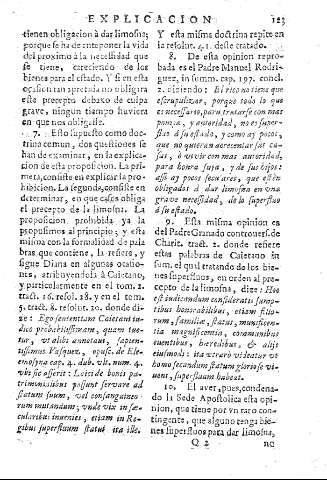 EXPLICACION 123
tienen obligacion à dar limosna;
porque se ha de anteponer la vida
del proximo à la necessidad que
se tiene, careciendo de los
bienes para el estado. Y si en esta
ocasion tan apretada no obligara
este precepto debaxo de culpa
grave, ningun tiempo huviera
en que nos obligasse.
7. Esto supuesto como doc-
trina comun, dos questiones se
han de examinar, en la explica-
cion de esta proposicion. La pri-
mera, consiste en explicar la pro-
hibicion. La segunda, consiste en
determinar, en que casos obliga
el precepto de la limosna. La
proposicion prohibida ya la
propusimos al principio; y esta
misma con la formalidad de pala
bras que contiene, la refiere, y
sigue Diana en algunas ocasio-
nes, atribuyendola à Caietano,
y particularmente en el tom. 2.
tract. 16. resol. 28. y en el tom.
5. tract. 8. resolut. 20. donde di-
ze: Ego sententiam Caietani iu-
dico probabilissimam, quam tue-
tur, vt alibi annotavi, sapien-
tissimus Vasquez, opusc. de Ele-
emosyna cap. 4. dub. vlt. num. 4.
vbi sic asserit: Laici de bonis pa-
trimonialibus possunt servare ad
statum suum, vel consanguineo-
rum mutandum; unde vix in sæ-
cularibus invenies, etiam in Re-
gibus superfluum statui ita ille.
Y esta misma doctrina repite en
la resolut. 41. deste tratado.
8. De esta opinion repro-
bada es el Padre Manuel Rodri-
guez, in summ. cap. 197. concl.
2. diziendo: El rico no tiene que
escrupulizar, porque todo lo que
es necessario, para tratarse con mas
honra, y autoridad, no es super-
fluo à su estado, y como ay pocos,
que no quieran acrecentar sus ca-
sas, à vivir con mas autoridad,
para honra suya, y de sus hijos:
assi ay pocos seculares, que estèn
obligados à dar limosna en vna
grave necessidad, de lo superfluo
à su estado.
9. Esta misma opinion es
del Padre Granado controvers. de
Charit. tract. 2. donde refiere
estas palabras de Caietano in
sum. el qual tratando de los bie-
nes superfluos, en orden al pre-
cepto de la limosna, dize: Hoc
est iudicandum consideratis sump-
tibus honorabilibus, etiam filio-
rum, familiæ, status, munificen-
tia magnificentia, communibus
euentibus, hæredibus, & alijs
eiusmodi: ita vt raro videatur vt
homo secundum statum gloriose vi-
uens, superfluum habeat.
10. El aver, pues, condena-
do la Sede Apostolica esta opi-
nion, que tiene por vn raro con-
tingente, que alguno tenga bie-
nes superfluos para dar limosna,
Q 2 no